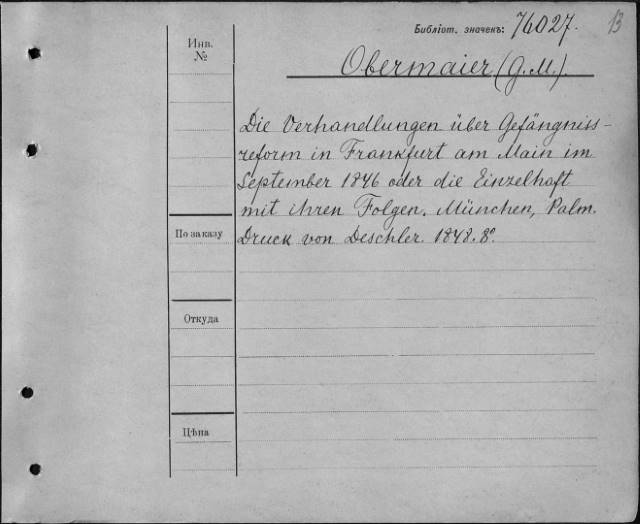 Библіот. значекъ: 76027. 13
Инв.
№
Obermaier (G. M.).
Die Verhandlungen über Gefängniss-
reform in Frankfurt am Main im
September 1846 oder die Einzelhaft
mit ihren Folgen. München, Palm.
По заказу
Druck von Deschler. 1848. 8°.
Откуда
Цѣна